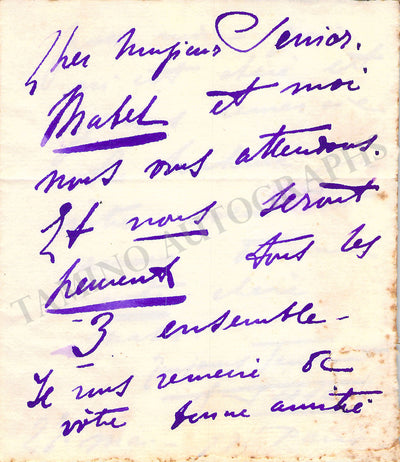 Cher Monsieur Senior.
Mabel et moi
nous vous attendons.
Et nous seront
tous les
3 ensemble -
Je vous remercie de
vôtre bonne amitié
TAMINO AUTOGRAPHS